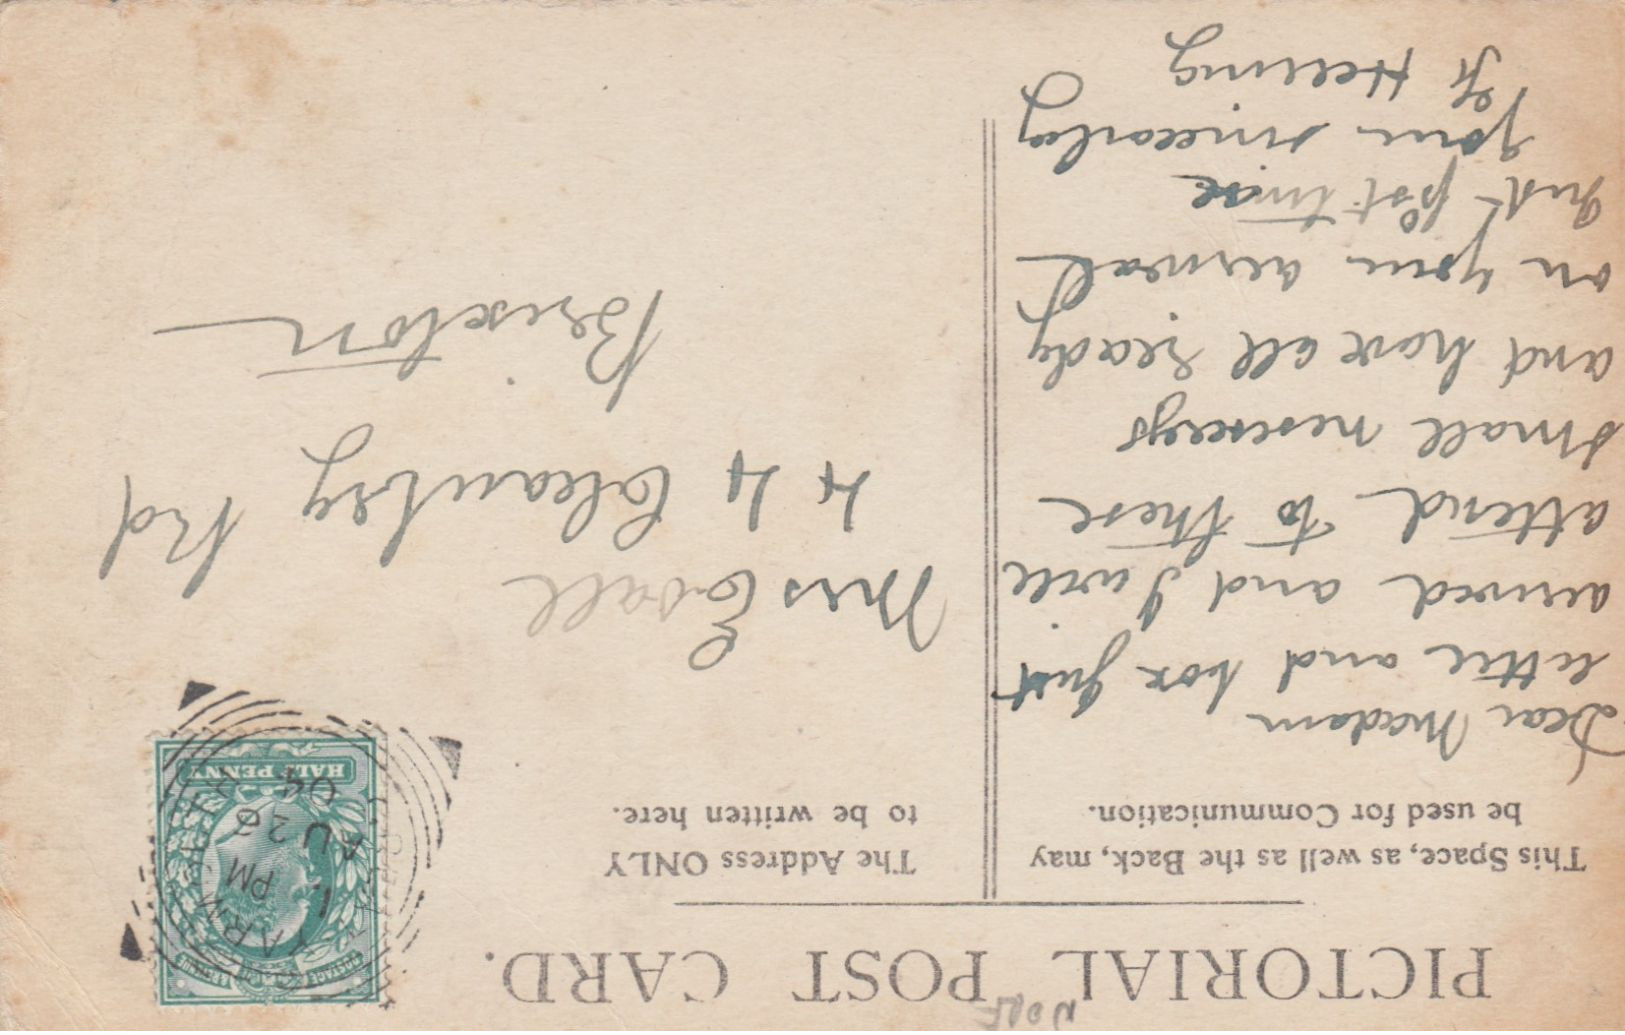 PICTORIAL POST CARD.
This Space, as well as the Back, may
be used for Communication.
The Address ONLY
to be written here.
Dear Madam
letter and box just
arrived and I will
attend to these
small
and have all ready
on your arrival
Just post time
yours sincerely
Helling
Mrs Coall
44 Rd
Brixton
HALF PENNY
POSTAGE
YARMOUTH
1. PM
AU 26
04